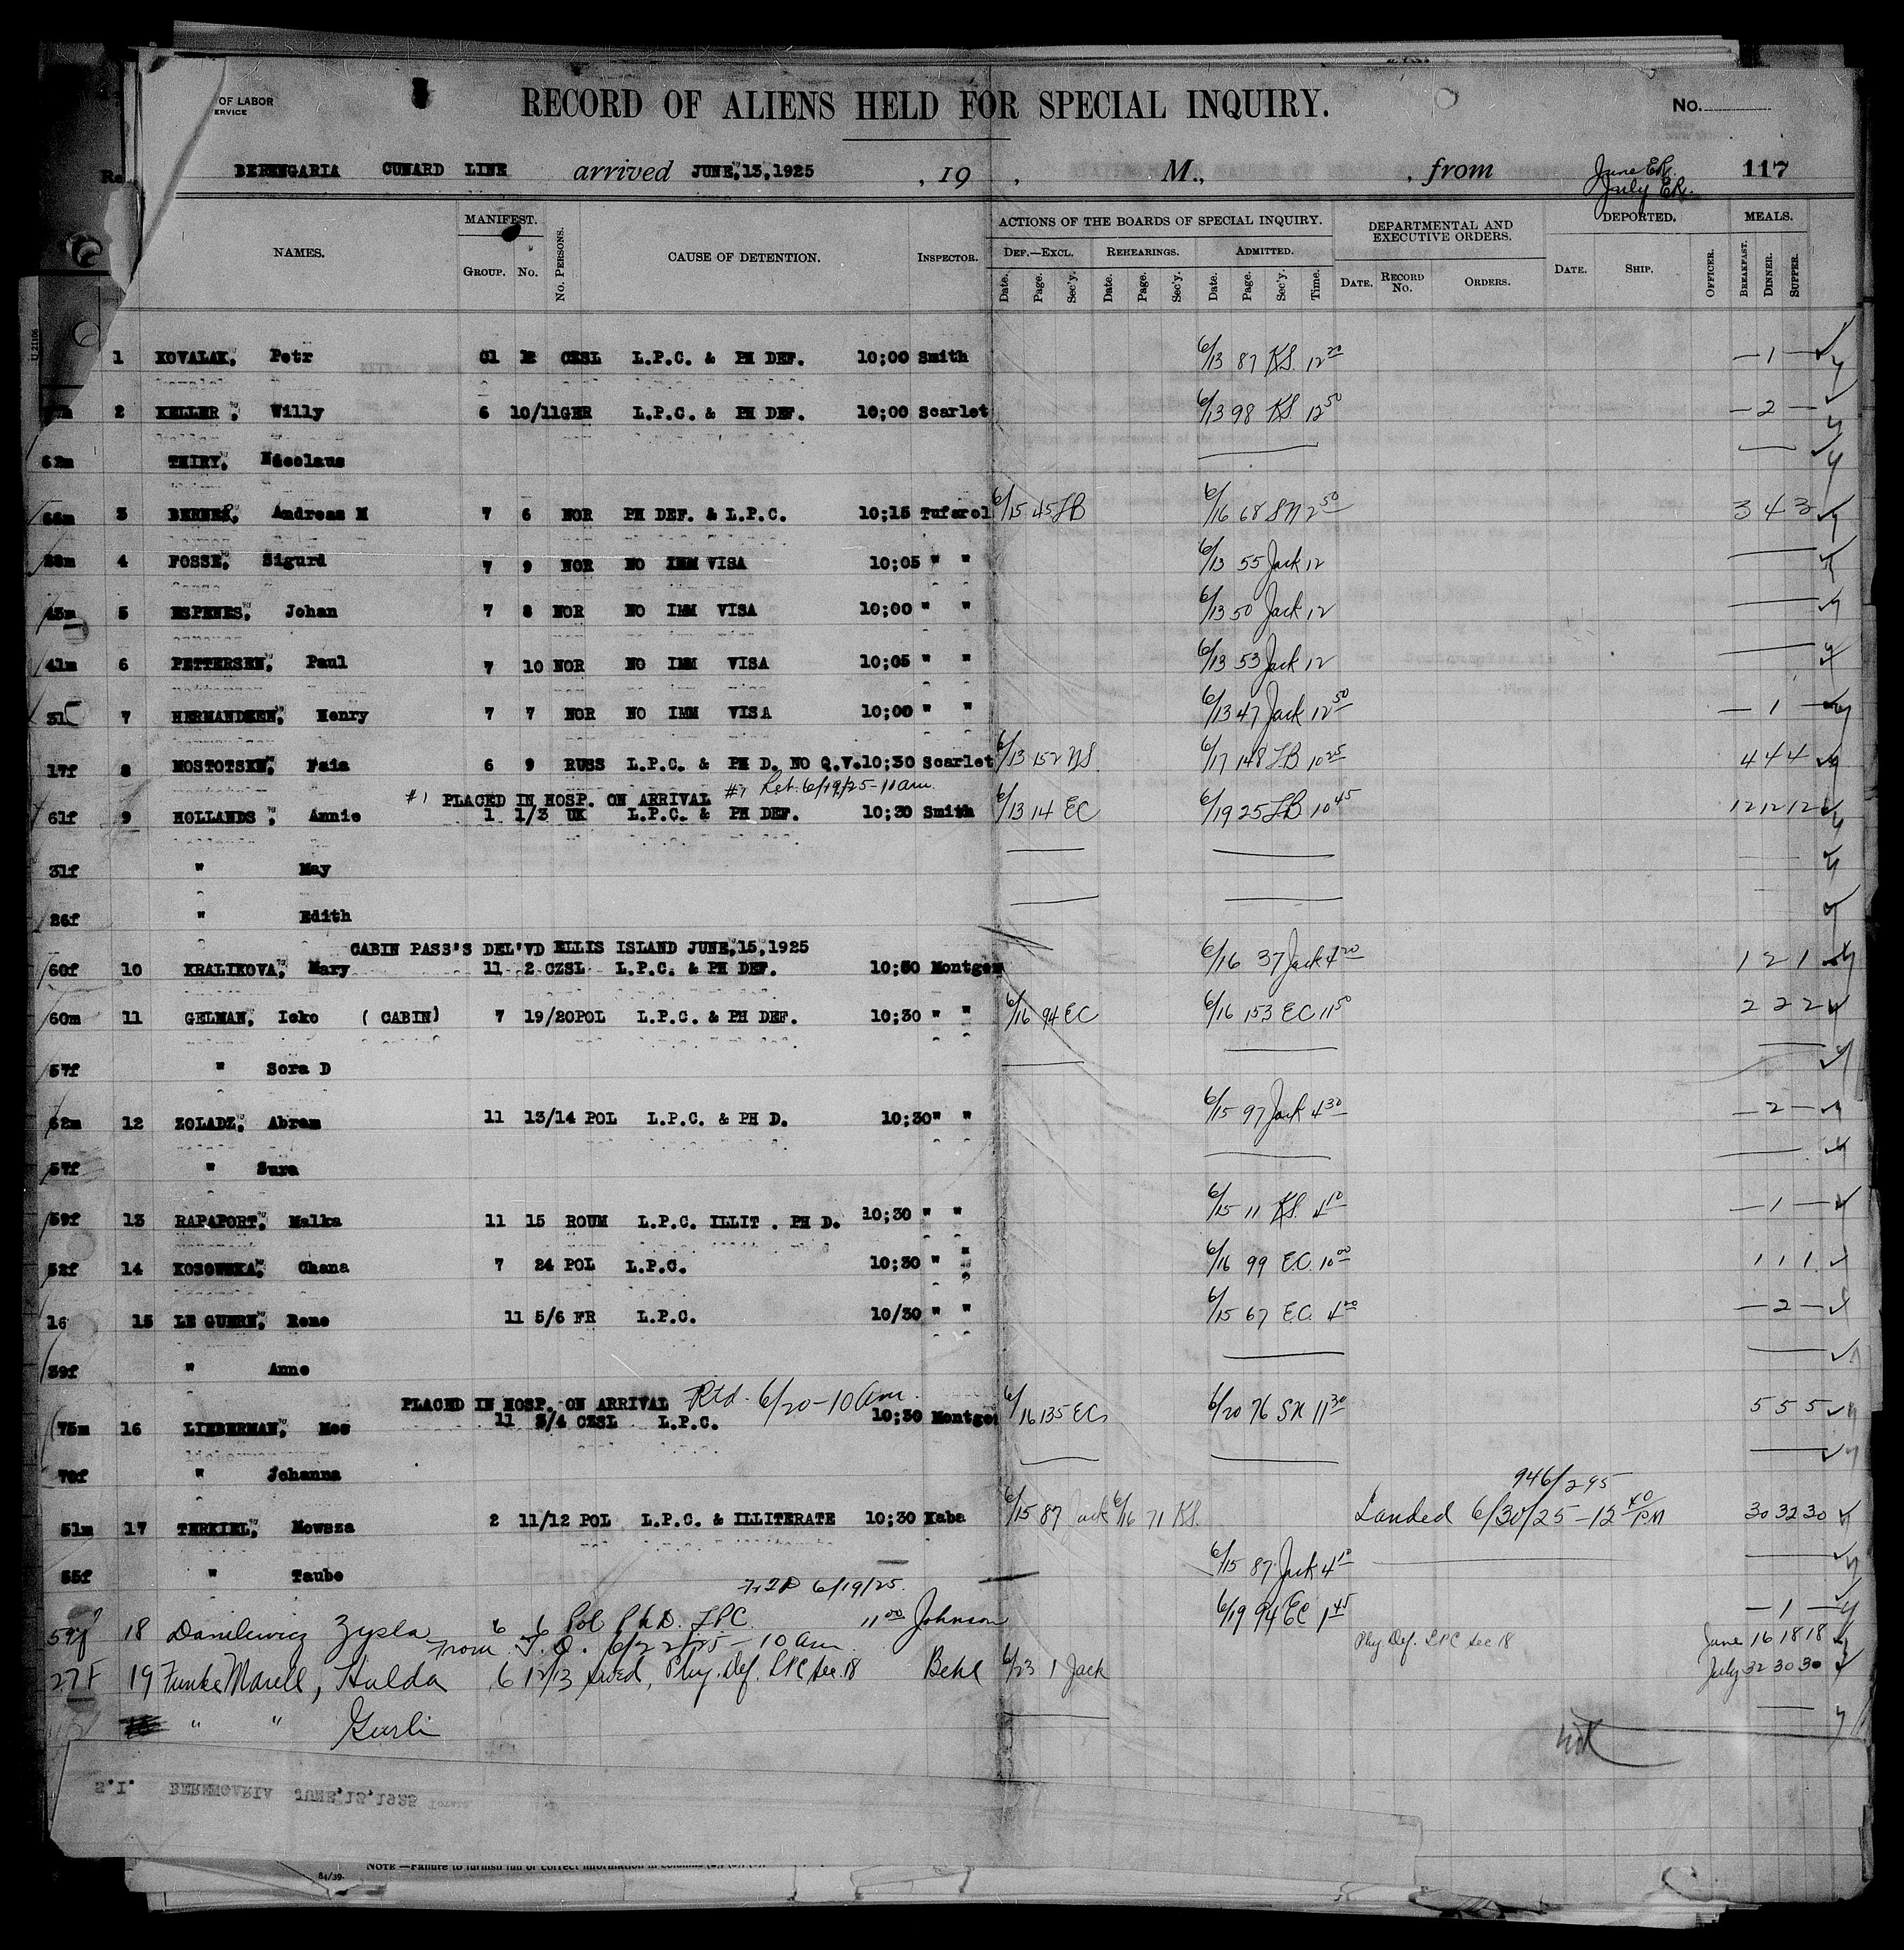 OF LABOR
ERVICE
RECORD OF ALIENS HELD FOR SPECIAL INQUIRY.
No.
BERENGARIA CUNARD LINE arrived JUNE,13,1925 , 19 , M., , from June ER. 117
July ER.
NAMES. MANIFEST. Group. No. No. Persons. CAUSE OF DETENTION. Inspector. ACTIONS OF THE BOARDS OF SPECIAL INQUIRY. DEPARTMENTAL AND EXECUTIVE ORDERS. DEPORTED. MEALS.
Def.—Excl. Rehearings. Admitted.
Date. Page. Sec'y. Date. Page. Sec'y. Date. Page. Sec'y. Time. Date. Record No. Orders. Date. Ship. Officer. Breakfast. Dinner. Supper.
1 KOVALAK, Petr 12 CZSL L.P.C. & PH DEF. 10;00 Smith 6/13 87 KS. 12 20 — 1 —
2 KELLER, Willy 6 10/11GER L.P.C. & PH DEF. 10;00 Scarlet 6/13 98 KS 12 50 — 2 —
62m THIRY, Nicolaus
66m 3 BERNER, Andreas M 7 6 NOR PH DEF. & L.P.C. 10;15 Tufarol 6/15 45 LB 6/16 68 SN 2 50 3 4 3
28m 4 FOSSE, Sigurd 7 9 NOR NO IMM VISA 10;05 " " 6/13 55 Jack 12
43m 5 ESPENES, Johan 7 8 NOR NO IMM VISA 10;00 " " 6/13 50 Jack 12
41m 6 PETTERSEN, Paul 7 10 NOR NO IMM VISA 10;05 " " 6/13 53 Jack 12
31 7 HERMANDSEN, Henry 7 7 NOR NO IMM VISA 10;00 " " 6/13 47 Jack 12 50 — 1 —
17f 8 Faia 6 9 RUSS L.P.C. & PH D. NO Q.V.10;30 Scarlet 6/13 152 NS 6/17 148 LB 10 25 4 4 4
#1 PLACED IN HOSP. ON ARRIVAL #1 Ret. 6/19/25-11am.
61f 9 HOLLANDS, Annie 1 1/3 UK L.P.C. & PH DEF. 10;30 Smith 6/13 14 EC 6/19 25 LB 10 45 12 12 12
31f " May
26f " Edith
CABIN PASS'S DEL'VD ELLIS ISLAND JUNE,15,1925
60f 10 KRALIKOVA, Mary 11 2 CZSL L.P.C. & PH DEF. 10;30 Montgom 6/16 37 Jack 4 20 1 2 1
60m 11 GELMAN, Icko (CABIN) 7 19/20POL L.P.C. & PH DEF. 10;30 " " 6/16 94 EC 6/16 153 EC 11 50 2 2 2
57f " Sora D
62m 12 ZOLADZ, Abram 11 13/14 POL L.P.C. & PH D. 10;30 " " 6/15 97 Jack 4 30 — 2 —
57f " Sura
59f 13 RAPAPORT, Malka 11 15 ROUM L.P.C. ILLIT . PH D. 10;30 " " 6/15 11 KS. 4 10 — 1 —
52f 14 KOSOWSKA, Chana 7 24 POL L.P.C. 10;30 " " 6/16 99 E.C. 10 00 1 1 1
16 15 LE GUERN, Rene 11 5/6 FR L.P.C. 10/30 " " 6/15 67 E.C. 4 20 — 2 —
39f " Anne
PLACED IN HOSP. ON ARRIVAL Rtd. 6/20-10am.
75m 16 LIEBERMAN, Mos 11 3/4 CZSL L.P.C. 10;30 Montgo 6/16 135 EC 6/20 76 SN 11 30 5 5 5
70f " Johanna
946/295
51m 17 TERKIEL, Mowsza 2 11/12 POL L.P.C. & ILLITERATE 10;30 Kaba 6/15 87 Jack 6/16 71 KS. Landed 6/30/25-12 40 PM 30 32 30
55f " Taube 6/15 87 Jack 4 10
6/19/25.
59f 18 Danilewicz Zysla 6 6 Pol Ph D. LPC 11 00 Johnson 6/19 94 EC 1 45 — 1 —
From T.O. 6/22/25-10 am. Phy Def. LPC Sec 18 June 16 18 18
27F 19 Funke Marell, Hulda 6 12/13 Swed, Phy. Def. LPC Sec. 18 Behl 6/23 1 Jack July 32 30 30
" " Gurli
S.I. BERENGARIA JUNE,13,1925
NOTE —Failure to furnish full or correct information in columns
84/39